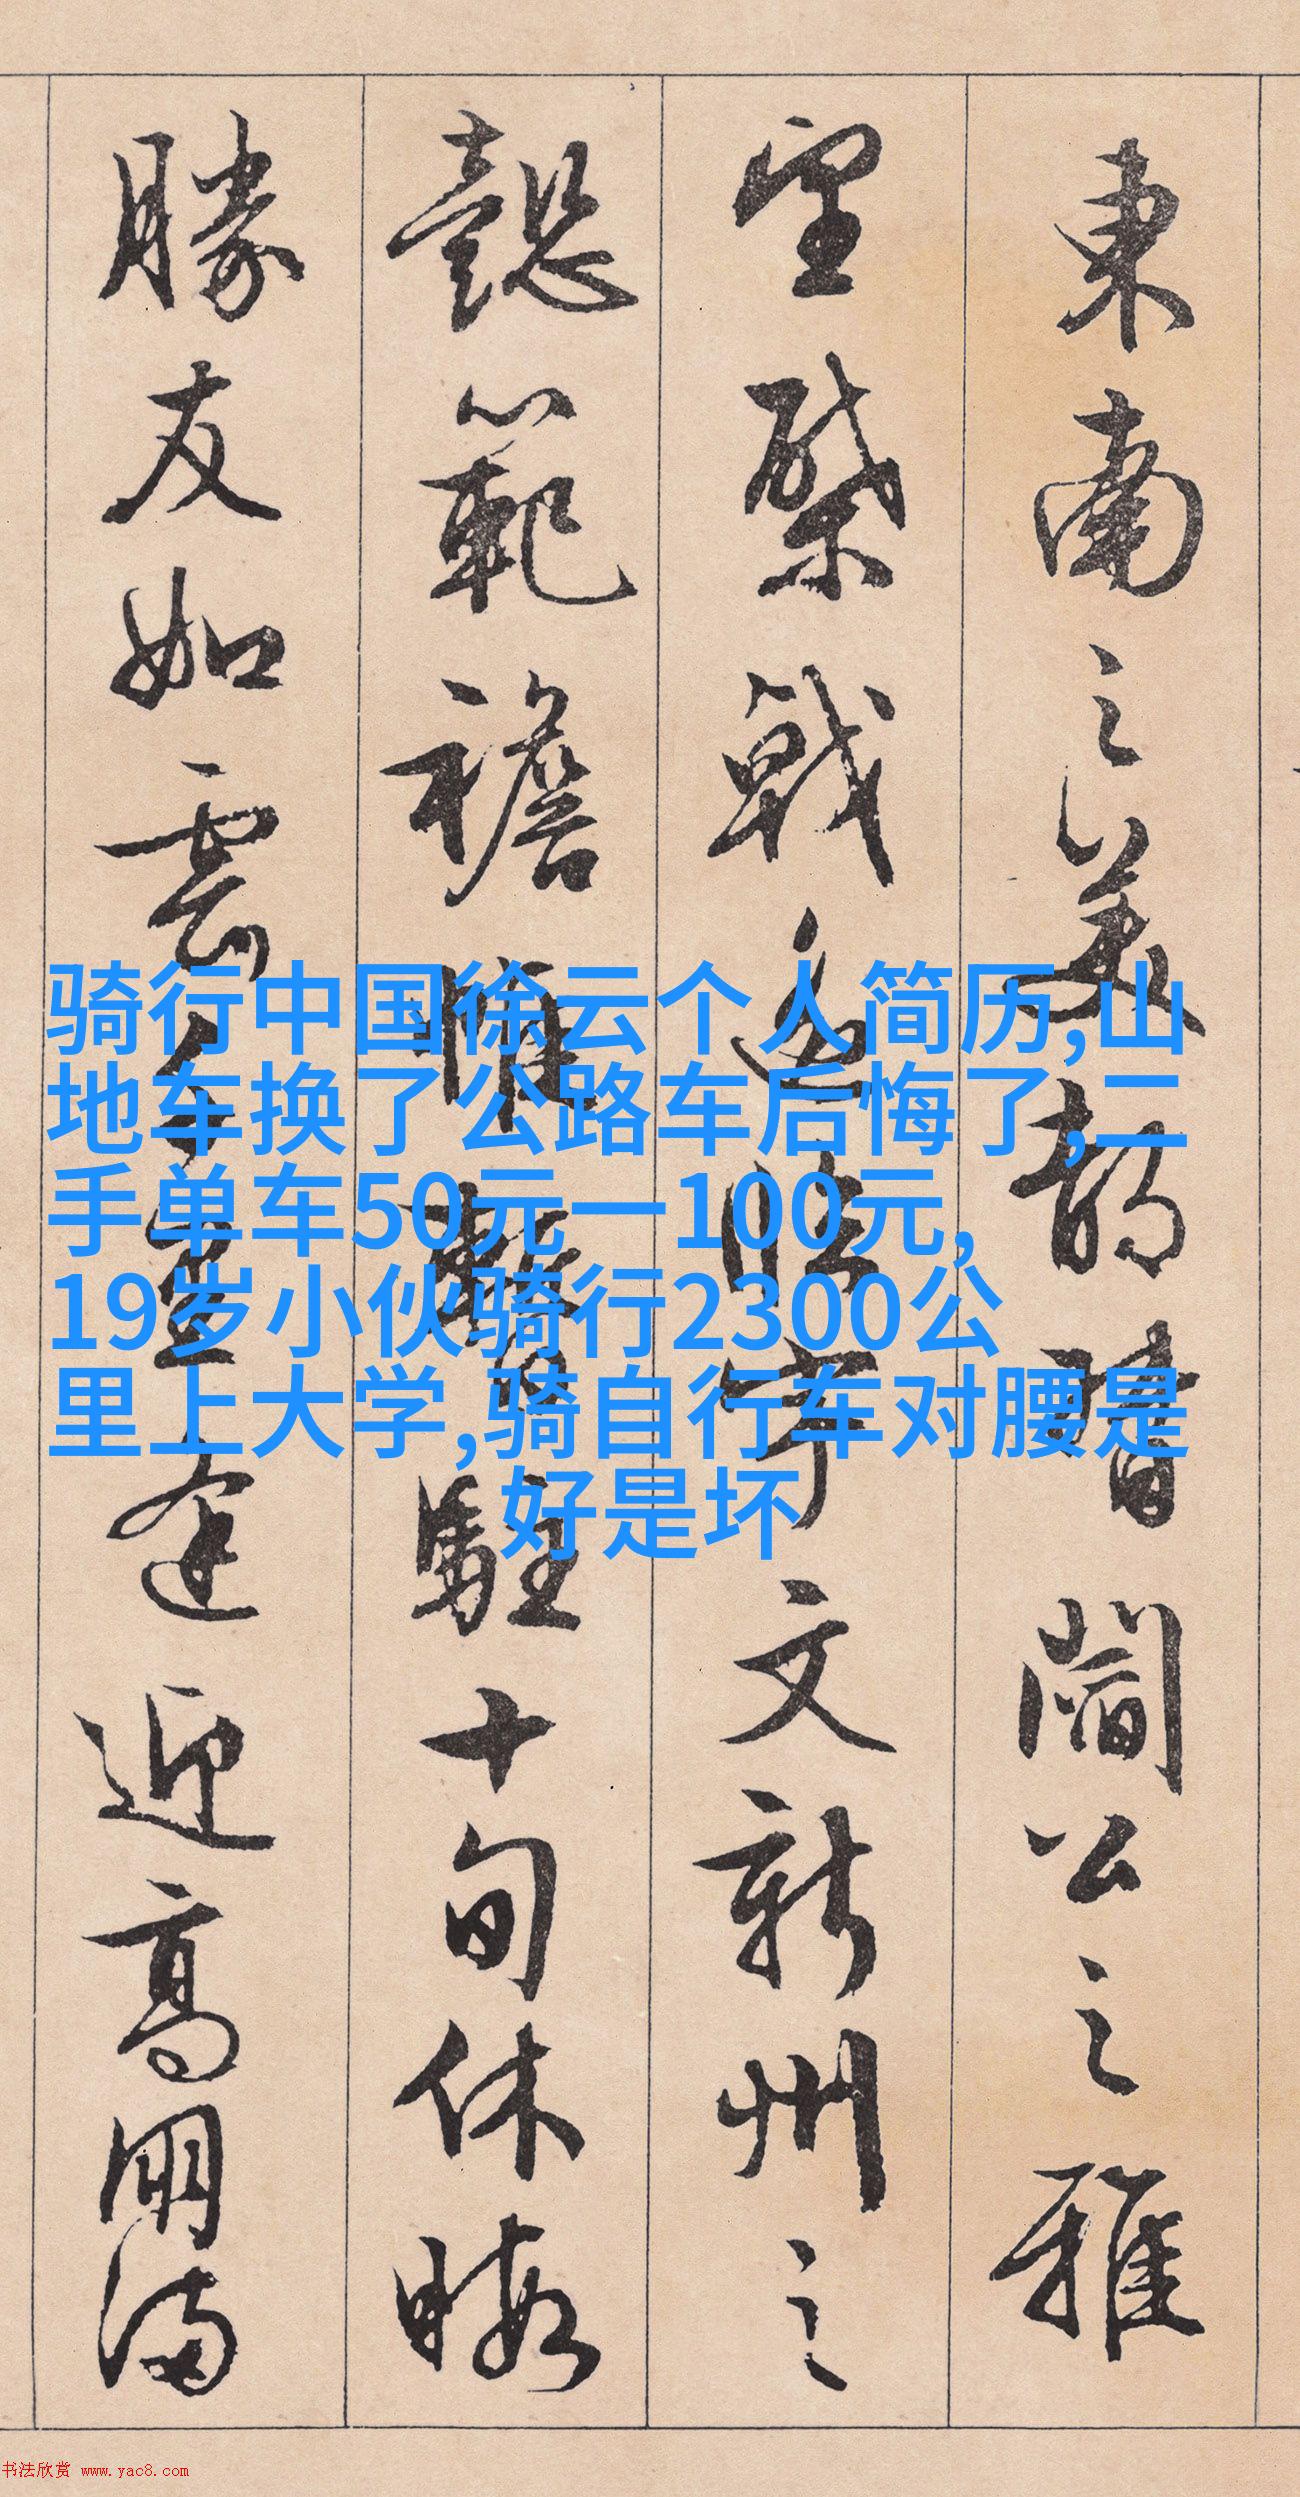 東南之美都督閻公之雅
望棨戟遥臨宇文新州之
懿範襜帷暫駐十旬休暇
勝友如雲千里逢迎高朋滿
骑行中国徐云个人简历,山
地车换了公路车后悔了,二
手单车50元一100元,
19岁小伙骑行2300公
里上大学,骑自行车对腰是
好是坏
书法欣赏 www.yac8.com